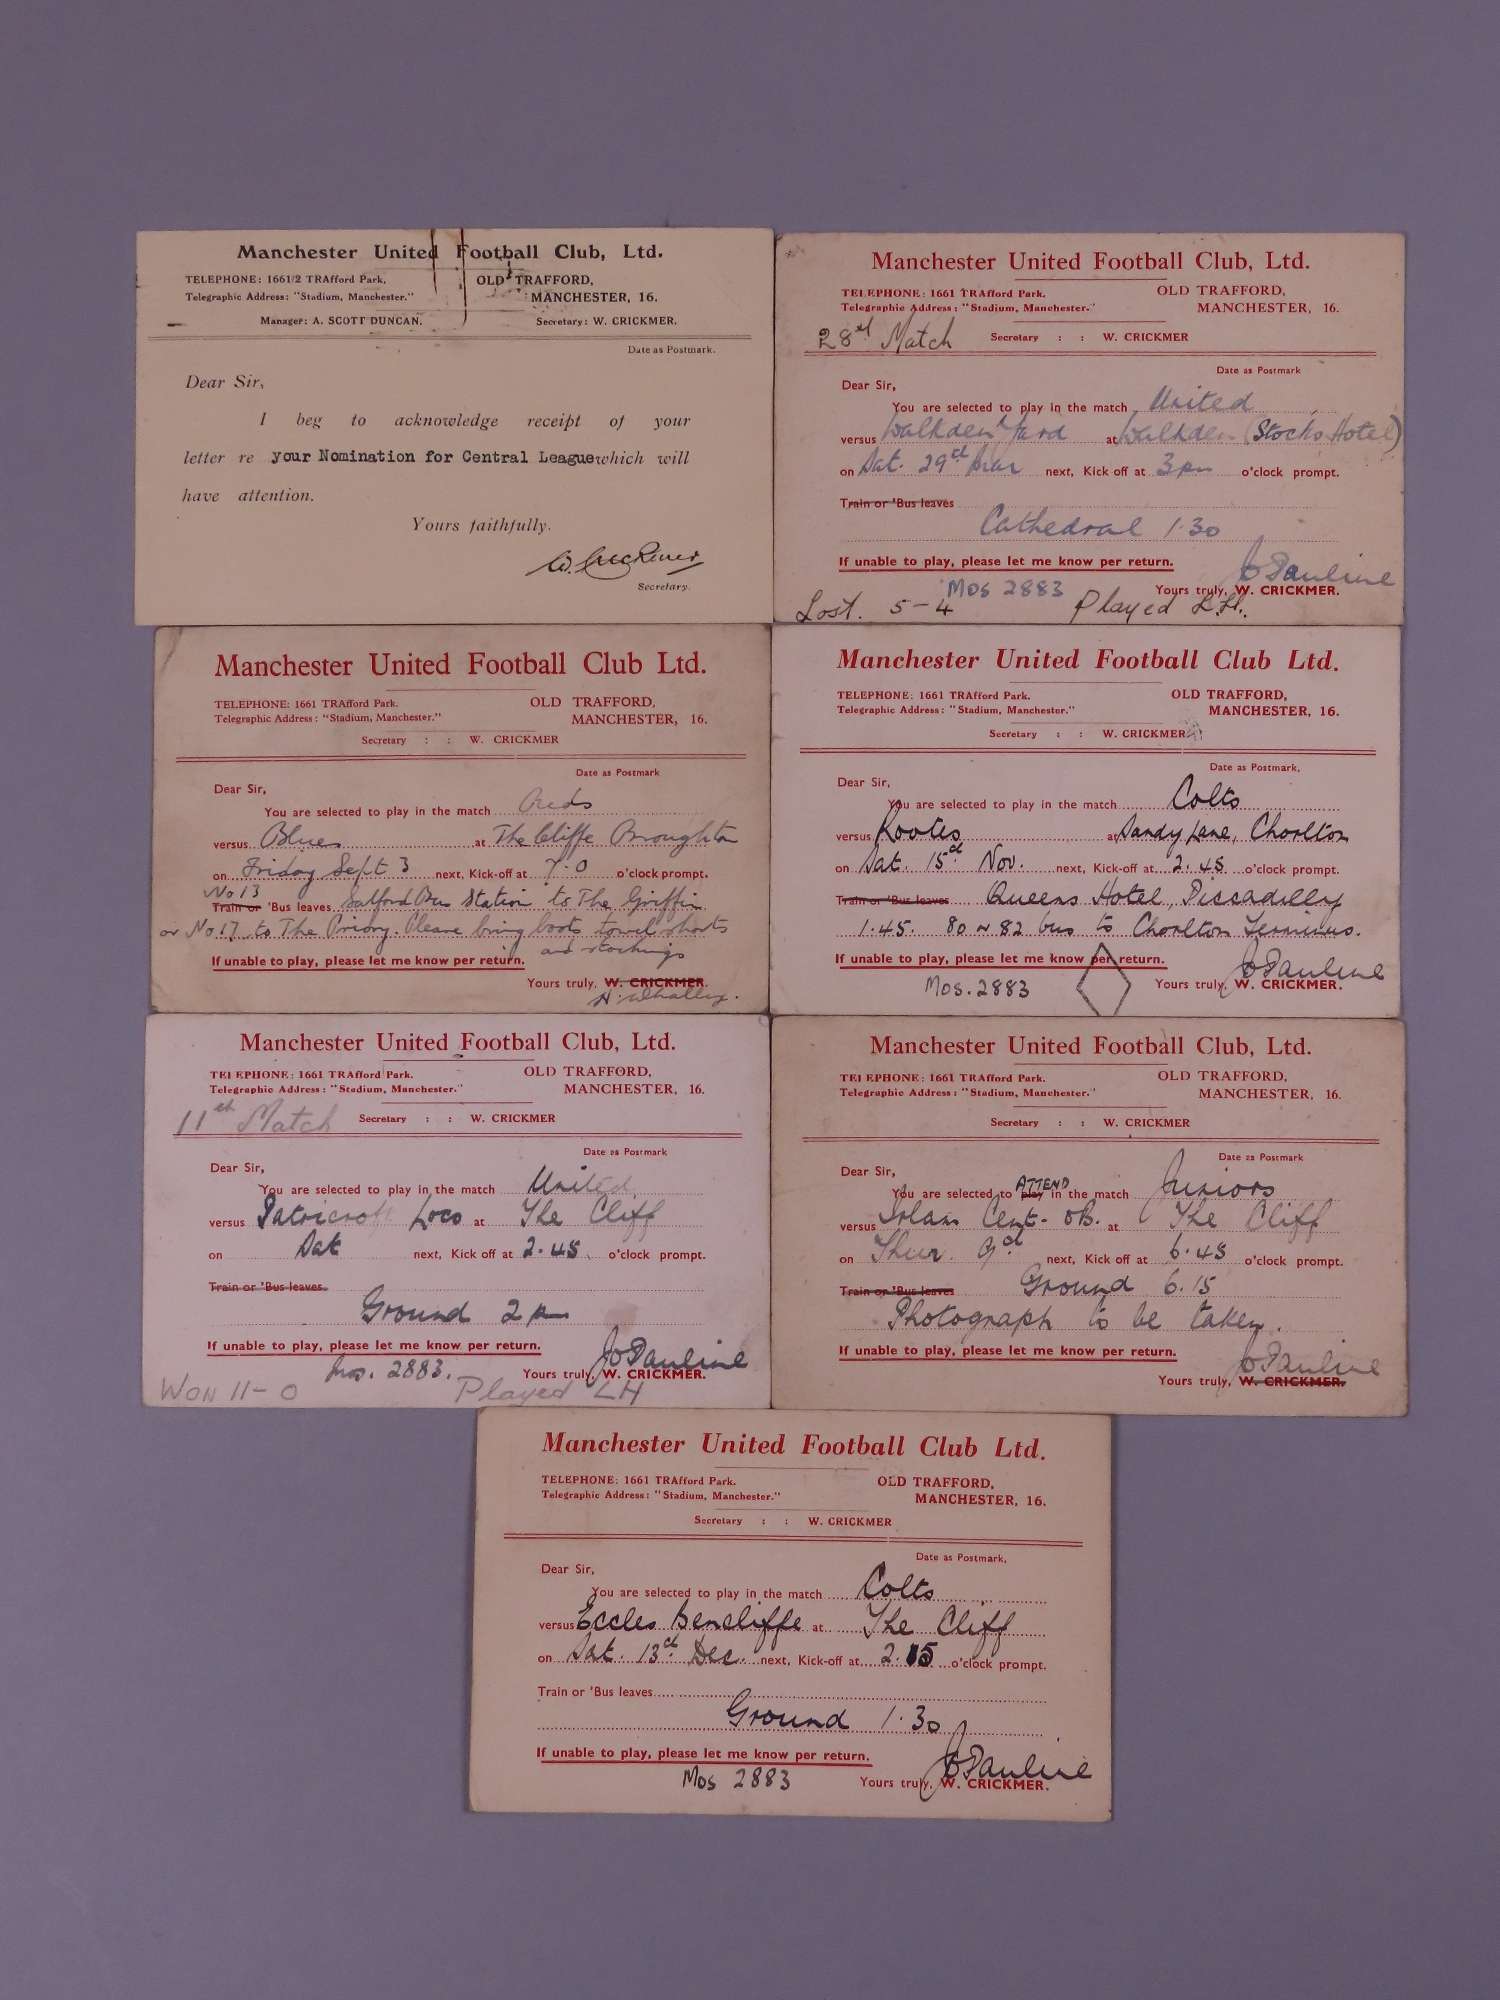 Manchester United Football Club, Ltd.
TELEPHONE: 1661/2 TRAfford Park. OLD TRAFFORD,
Telegraphic Address: "Stadium, Manchester." MANCHESTER, 16.
Manager: A. SCOTT DUNCAN. Secretary: W. CRICKMER.
Date as Postmark.
Dear Sir,
I beg to acknowledge receipt of your
letter re your Nomination for Central League which will
have attention.
Yours faithfully.
W. Crickmer
Secretary.
Manchester United Football Club, Ltd.
TELEPHONE: 1661 TRAfford Park. OLD TRAFFORD,
Telegraphic Address: "Stadium, Manchester." MANCHESTER, 16.
28th Match Secretary : : W. CRICKMER
Date as Postmark
Dear Sir,
You are selected to play in the match United
versus Walkden Yard at Walkden (Stocks Hotel)
on Sat. 29th Mar next, Kick off at 3pm o'clock prompt.
Train or 'Bus leaves
Cathedral 1.30
If unable to play, please let me know per return. Jo Pauline
MOS 2883 Yours truly, W. CRICKMER.
Lost. 5-4 Played L.H.
Manchester United Football Club Ltd.
TELEPHONE: 1661 TRAfford Park. OLD TRAFFORD,
Telegraphic Address: "Stadium, Manchester." MANCHESTER, 16.
Secretary : : W. CRICKMER
Date as Postmark
Dear Sir,
You are selected to play in the match Reds
versus Blues at The Cliffe Broughton
on Friday Sept 3 next, Kick-off at 7.0 o'clock prompt.
No 13
Train or 'Bus leaves Salford Bus Station to The Griffin
or No. 17 to The Priory. Please bring boots towel shorts
and stockings
If unable to play, please let me know per return.
Yours truly, W. CRICKMER.
H. Whalley.
Manchester United Football Club Ltd.
TELEPHONE: 1661 TRAfford Park. OLD TRAFFORD,
Telegraphic Address: "Stadium, Manchester." MANCHESTER, 16.
Secretary : : W. CRICKMER
Date as Postmark,
Dear Sir,
You are selected to play in the match Colts
versus Rootes at Sandy Lane, Chorlton
on Sat. 15th Nov. next, Kick-off at 2.45 o'clock prompt.
Train or 'Bus leaves Queens Hotel, Piccadilly
1.45. 80 or 82 bus to Chorlton Terminus.
If unable to play, please let me know per return. Jo Pauline
Mos. 2883 Yours truly, W. CRICKMER.
Manchester United Football Club, Ltd.
TELEPHONE: 1661 TRAfford Park. OLD TRAFFORD,
Telegraphic Address: "Stadium, Manchester." MANCHESTER, 16.
11th Match Secretary : : W. CRICKMER
Date as Postmark
Dear Sir,
You are selected to play in the match United
versus Patricroft Loco at The Cliff
on Sat next, Kick off at 2.45 o'clock prompt.
Train or 'Bus leaves.
Ground 2 pm
If unable to play, please let me know per return. Jo Pauline
Mos. 2883. Yours truly, W. CRICKMER.
WON 11-0 Played LH
Manchester United Football Club, Ltd.
TELEPHONE: 1661 TRAfford Park. OLD TRAFFORD,
Telegraphic Address: "Stadium, Manchester." MANCHESTER, 16.
Secretary : : W. CRICKMER
Date as Postmark
Dear Sir,
ATTEND
You are selected to play in the match Juniors
versus Irlam Cent. OB. at The Cliff
on Thur. 9th next, Kick off at 6.45 o'clock prompt.
Train or 'Bus leaves Ground 6.15
Photograph to be taken.
If unable to play, please let me know per return. Jo Pauline
Yours truly, W. CRICKMER.
Manchester United Football Club Ltd.
TELEPHONE: 1661 TRAfford Park. OLD TRAFFORD,
Telegraphic Address: "Stadium, Manchester." MANCHESTER, 16.
Secretary : : W. CRICKMER
Date as Postmark,
Dear Sir,
You are selected to play in the match Colts
versus Eccles Bencliffe at The Cliff
on Sat. 13th Dec. next, Kick-off at 2.15 o'clock prompt.
Train or 'Bus leaves
Ground 1.30
If unable to play, please let me know per return. Jo Pauline
Mos 2883 Yours truly, W. CRICKMER.